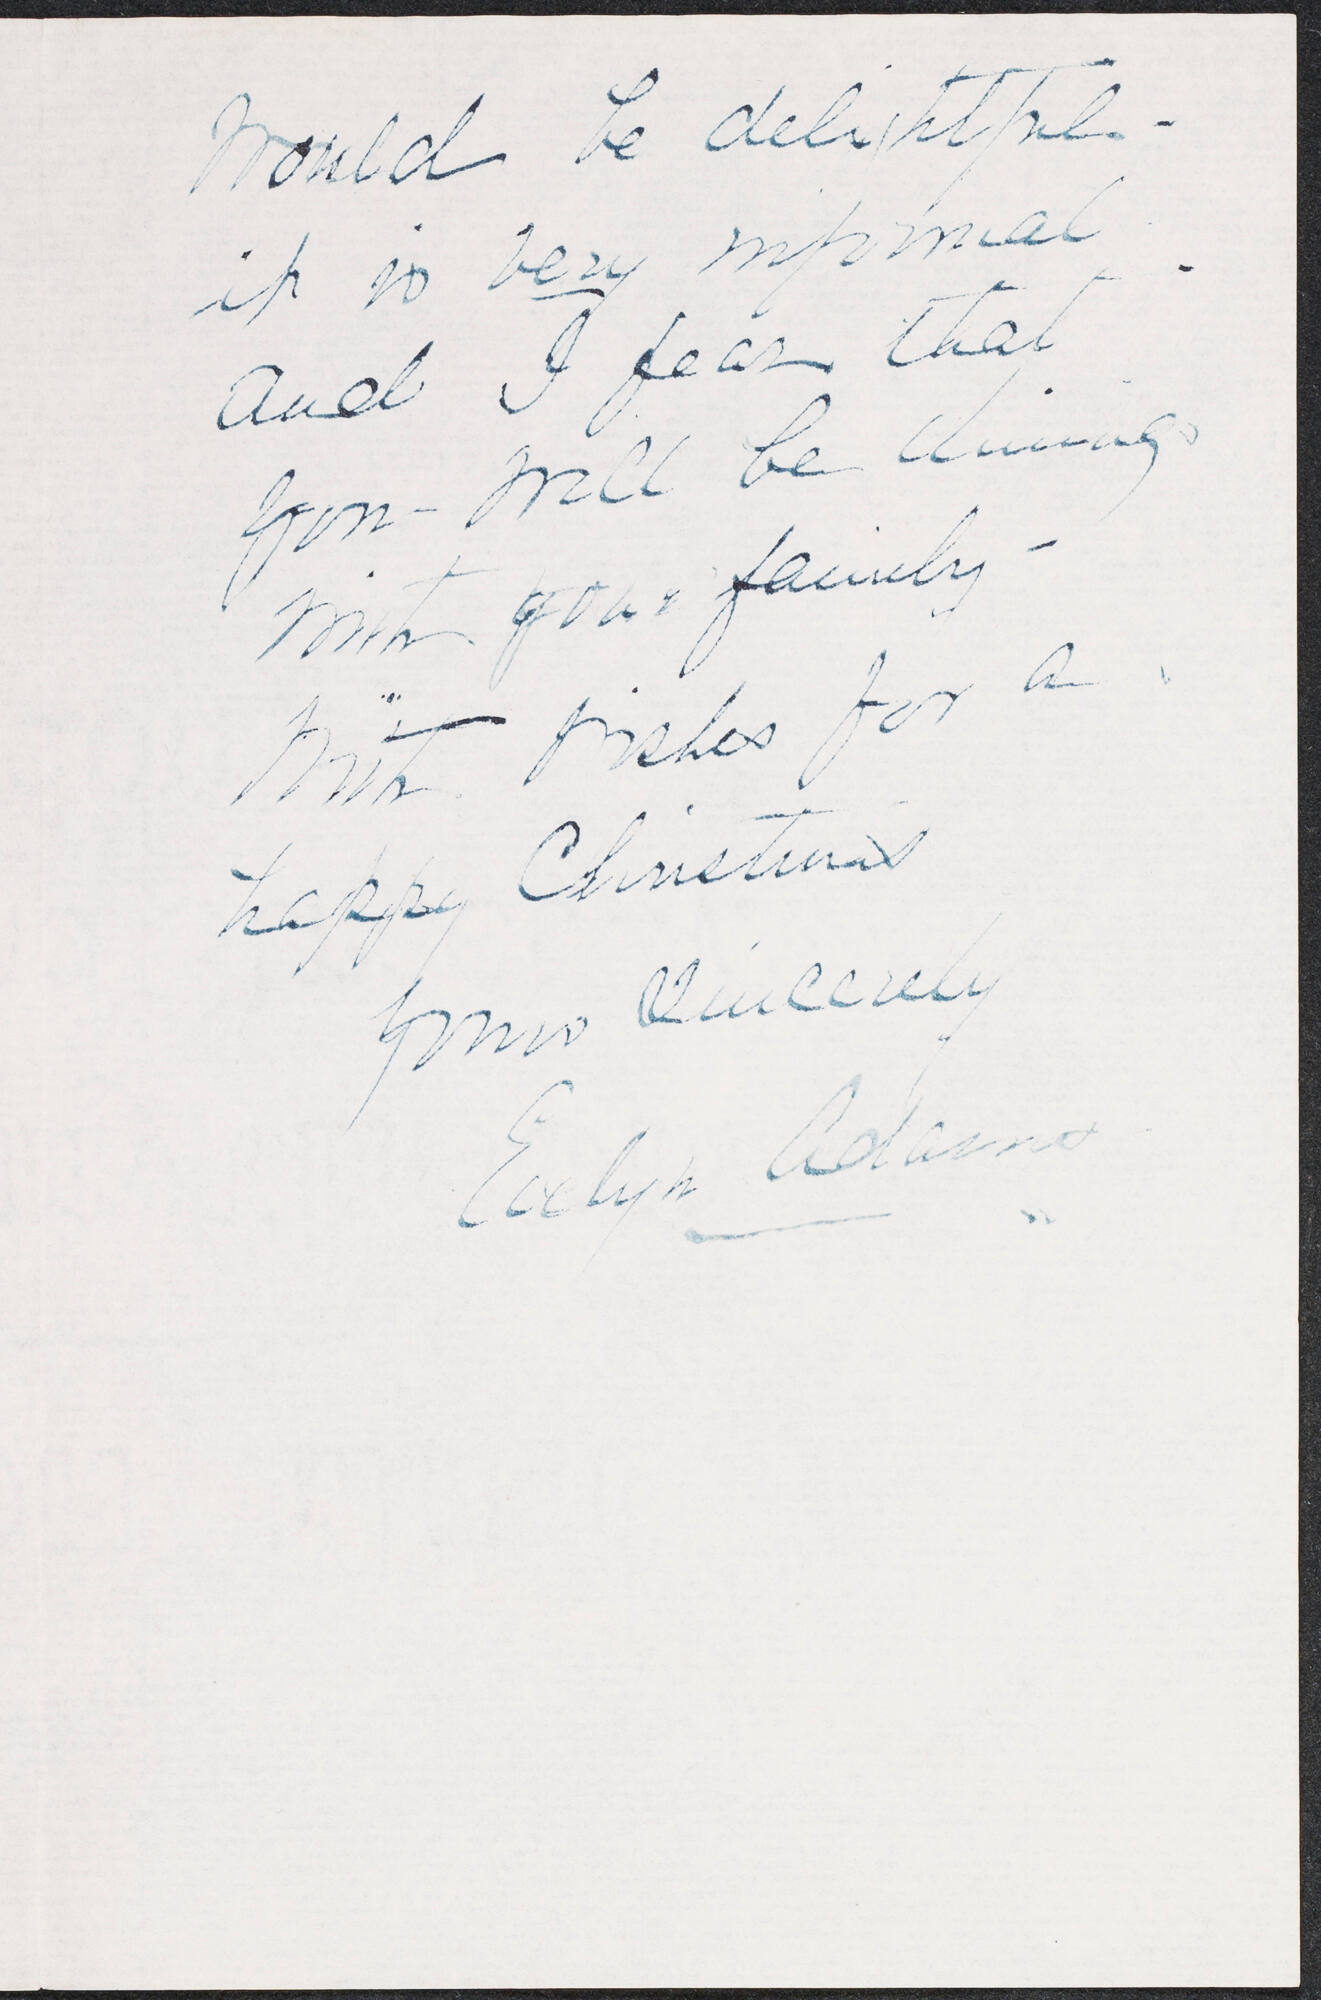 would be delightful -
it is very informal
and I fear that
you - will be dining
with your family -
With wishes for a
happy Christmas
Yours Sincerely
Evelyn Adams